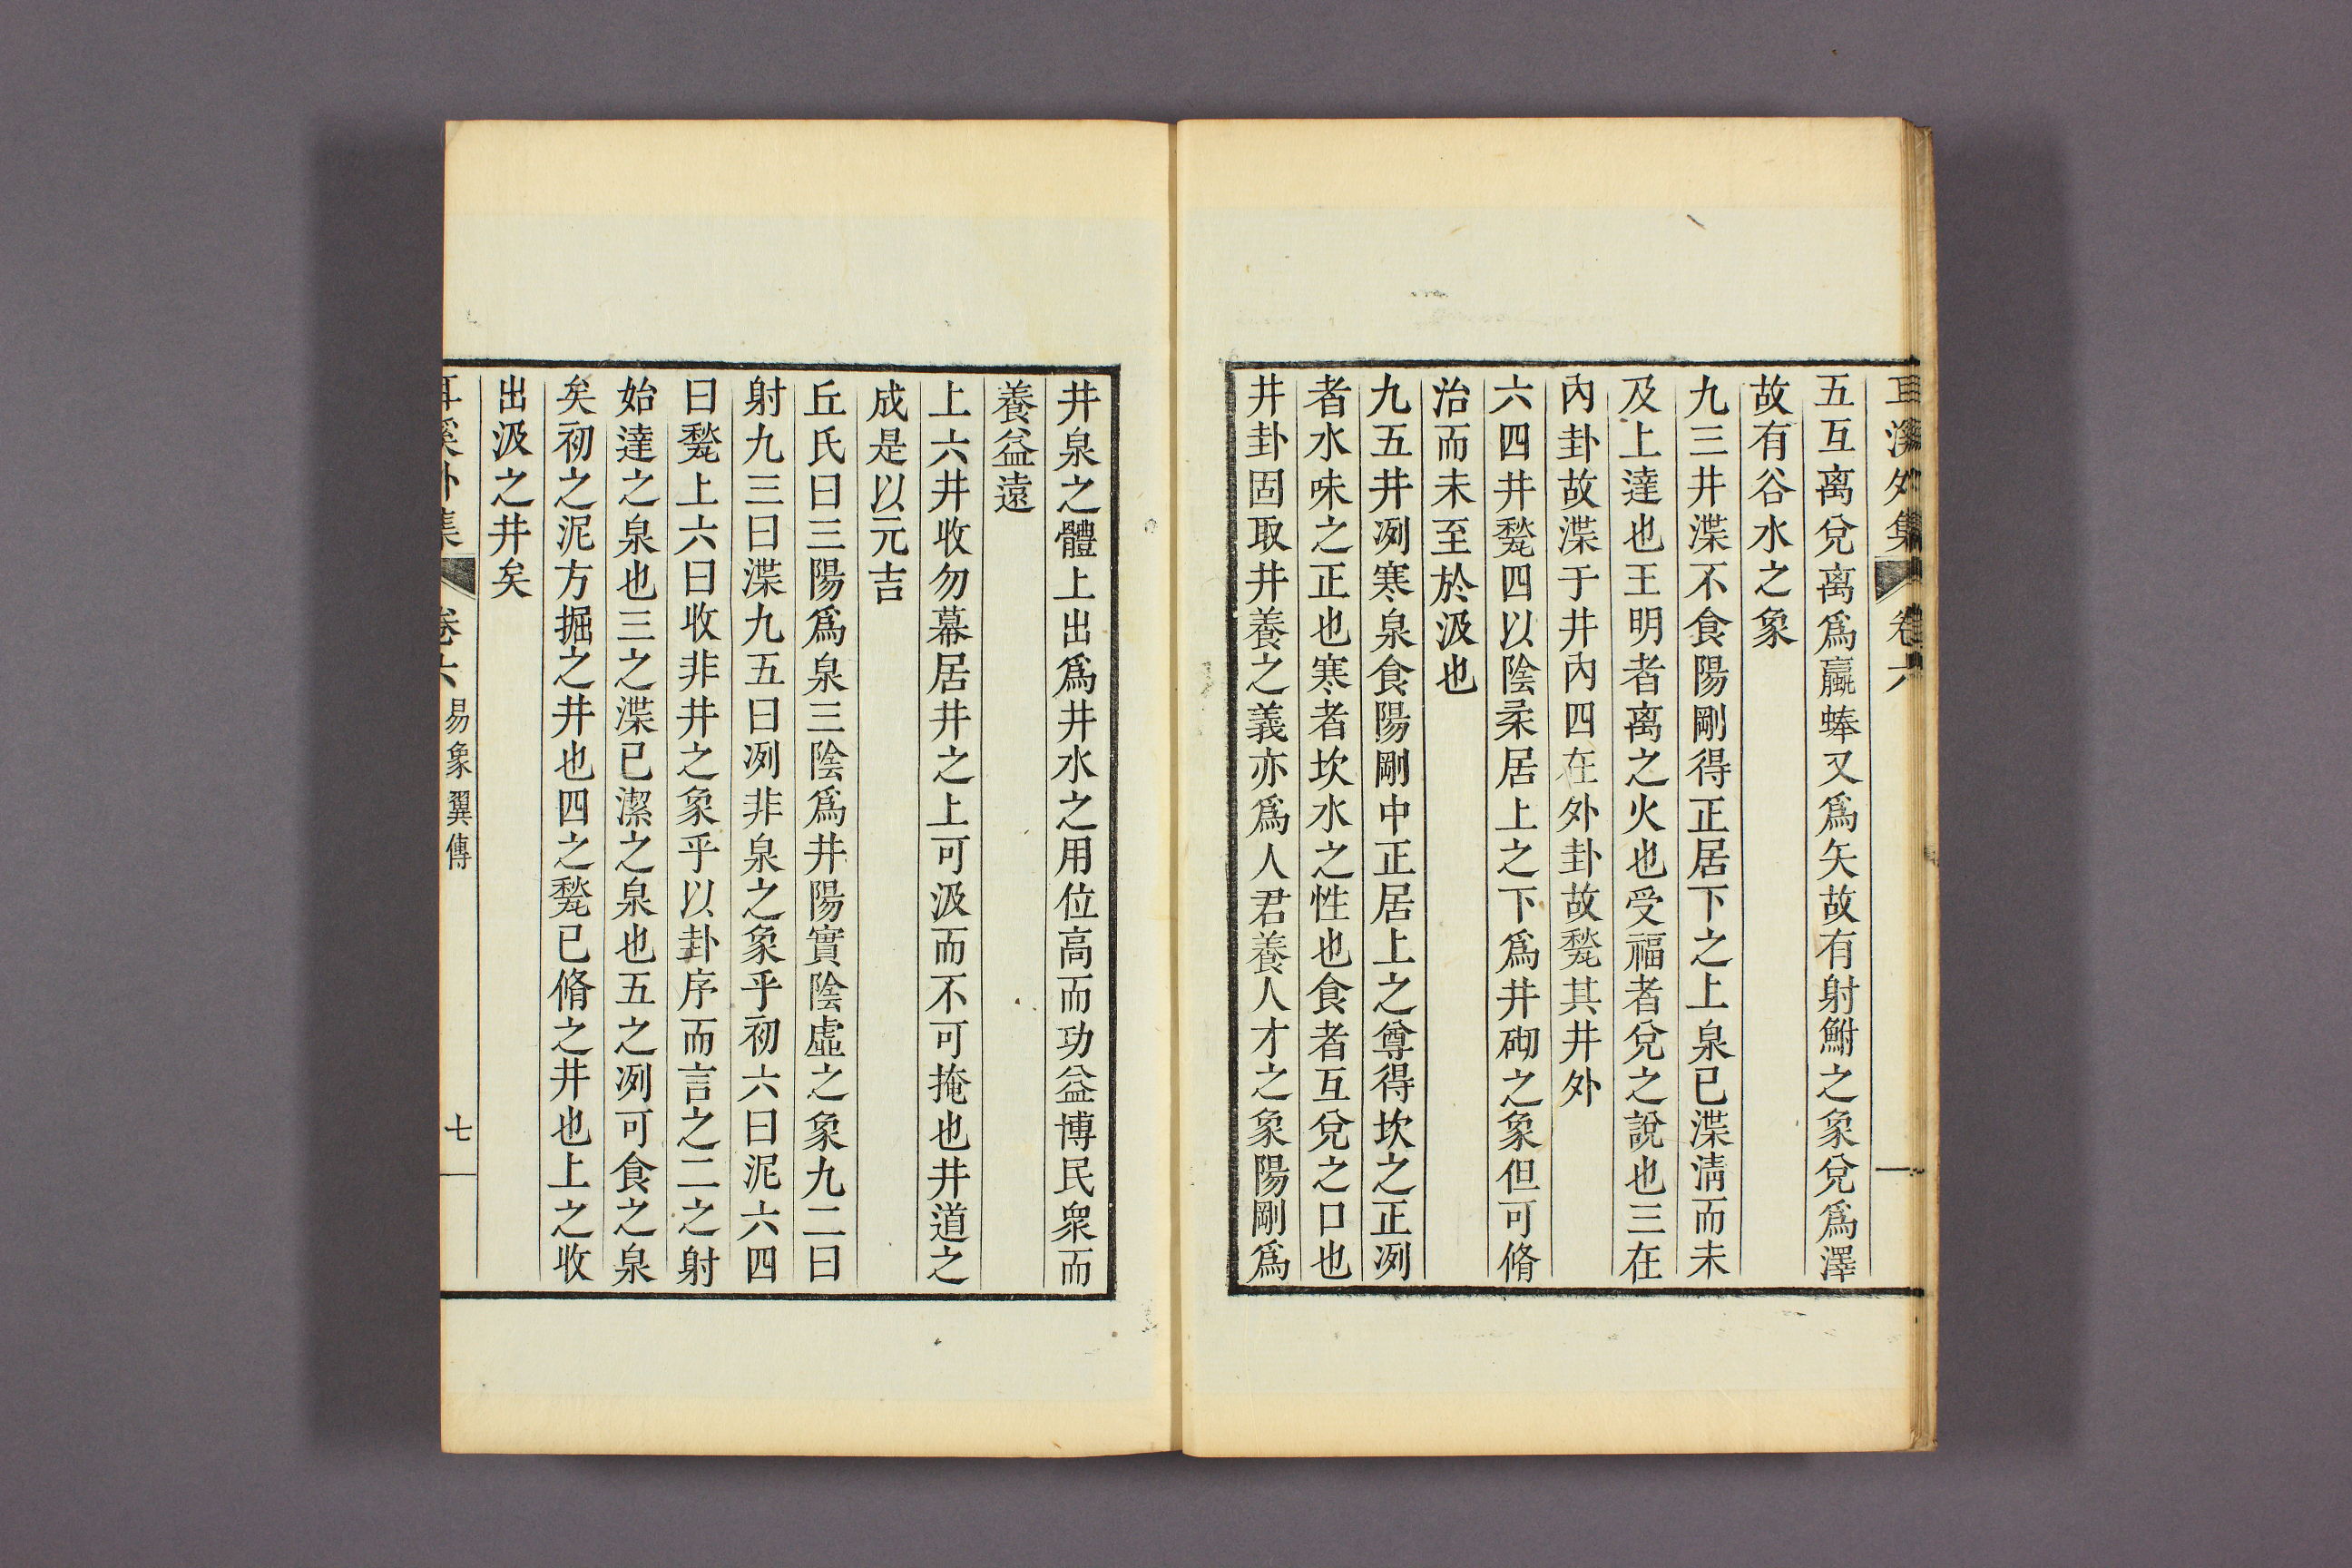 耳溪外集 卷六
五互离兌离爲蠃蜯又爲矢故有射鮒之象兌爲澤
故有谷水之象
九三井渫不食陽剛得正居下之上泉已渫淸而未
及上達也王明者离之火也受福者兌之說也三在
內卦故渫于井內四在外卦故甃其井外
六四井甃四以陰柔居上之下爲井砌之象但可脩
治而未至於汲也
九五井冽寒泉食陽剛中正居上之尊得坎之正冽
者水味之正也寒者坎水之性也食者互兌之口也
井卦固取井養之義亦爲人君養人才之象陽剛爲
井泉之體上出爲井水之用位高而功益博民衆而
養益遠
上六井收勿幕居井之上可汲而不可掩也井道之
成是以元吉
丘氏曰三陽爲泉三陰爲井陽實陰虛之象九二曰
射九三曰渫九五曰冽非泉之象乎初六曰泥六四
曰甃上六曰收非井之象乎以卦序而言之二之射
始達之泉也三之渫已潔之泉也五之冽可食之泉
矣初之泥方掘之井也四之甃已脩之井也上之收
出汲之井矣
耳溪外集 卷六 易象翼傳 七